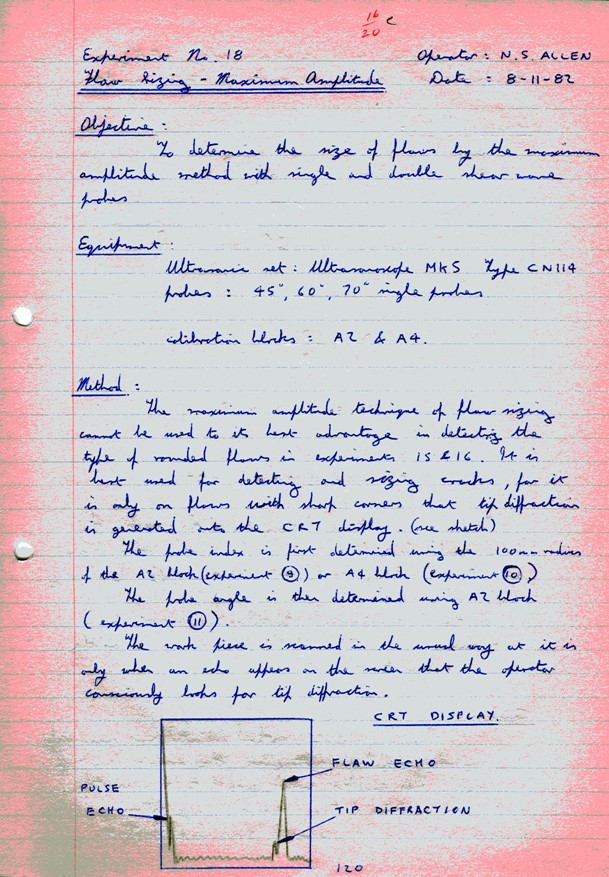 16
20 c
Experiment No. 18 Operator: N.S. ALLEN
Flaw Sizing - Maximum Amplitude Date : 8-11-82
Objective :
To determine the size of flaws by the maximum
amplitude method with single and double shear wave
probes
Equipment :
Ultrasonic set : Ultrasonoscope MK5 Type CN114
probes : 45°, 60°, 70° single probes
calibration blocks : A2 & A4.
Method :
The maximum amplitude technique of flaw sizing
cannot be used to its best advantage in detecting the
type of rounded flaws in experiments 15 & 16. It is
best used for detecting and sizing cracks, for it
is only on flaws with sharp corners that tip diffraction
is generated onto the CRT display. (see sketch)
The probe index is first determined using the 100mm radius
of the A2 block (experiment 9) or A4 block (experiment 10)
The probe angle is then determined using A2 block
( experiment 11 ).
The work piece is scanned in the usual way at it is
only when an echo appears on the screen that the operator
consciously looks for tip diffraction.
CRT DISPLAY.
FLAW ECHO
PULSE
ECHO
TIP DIFFRACTION
120